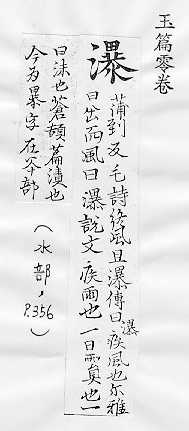 玉篇零卷
瀑
蒲到反毛詩終風且瀑傳曰瀑疾風也尒雅
日出而風曰瀑說文疾雨也一曰霣也一
曰沫也蒼頡篇漬也
今为暴字在夲部
(水部,P.356)